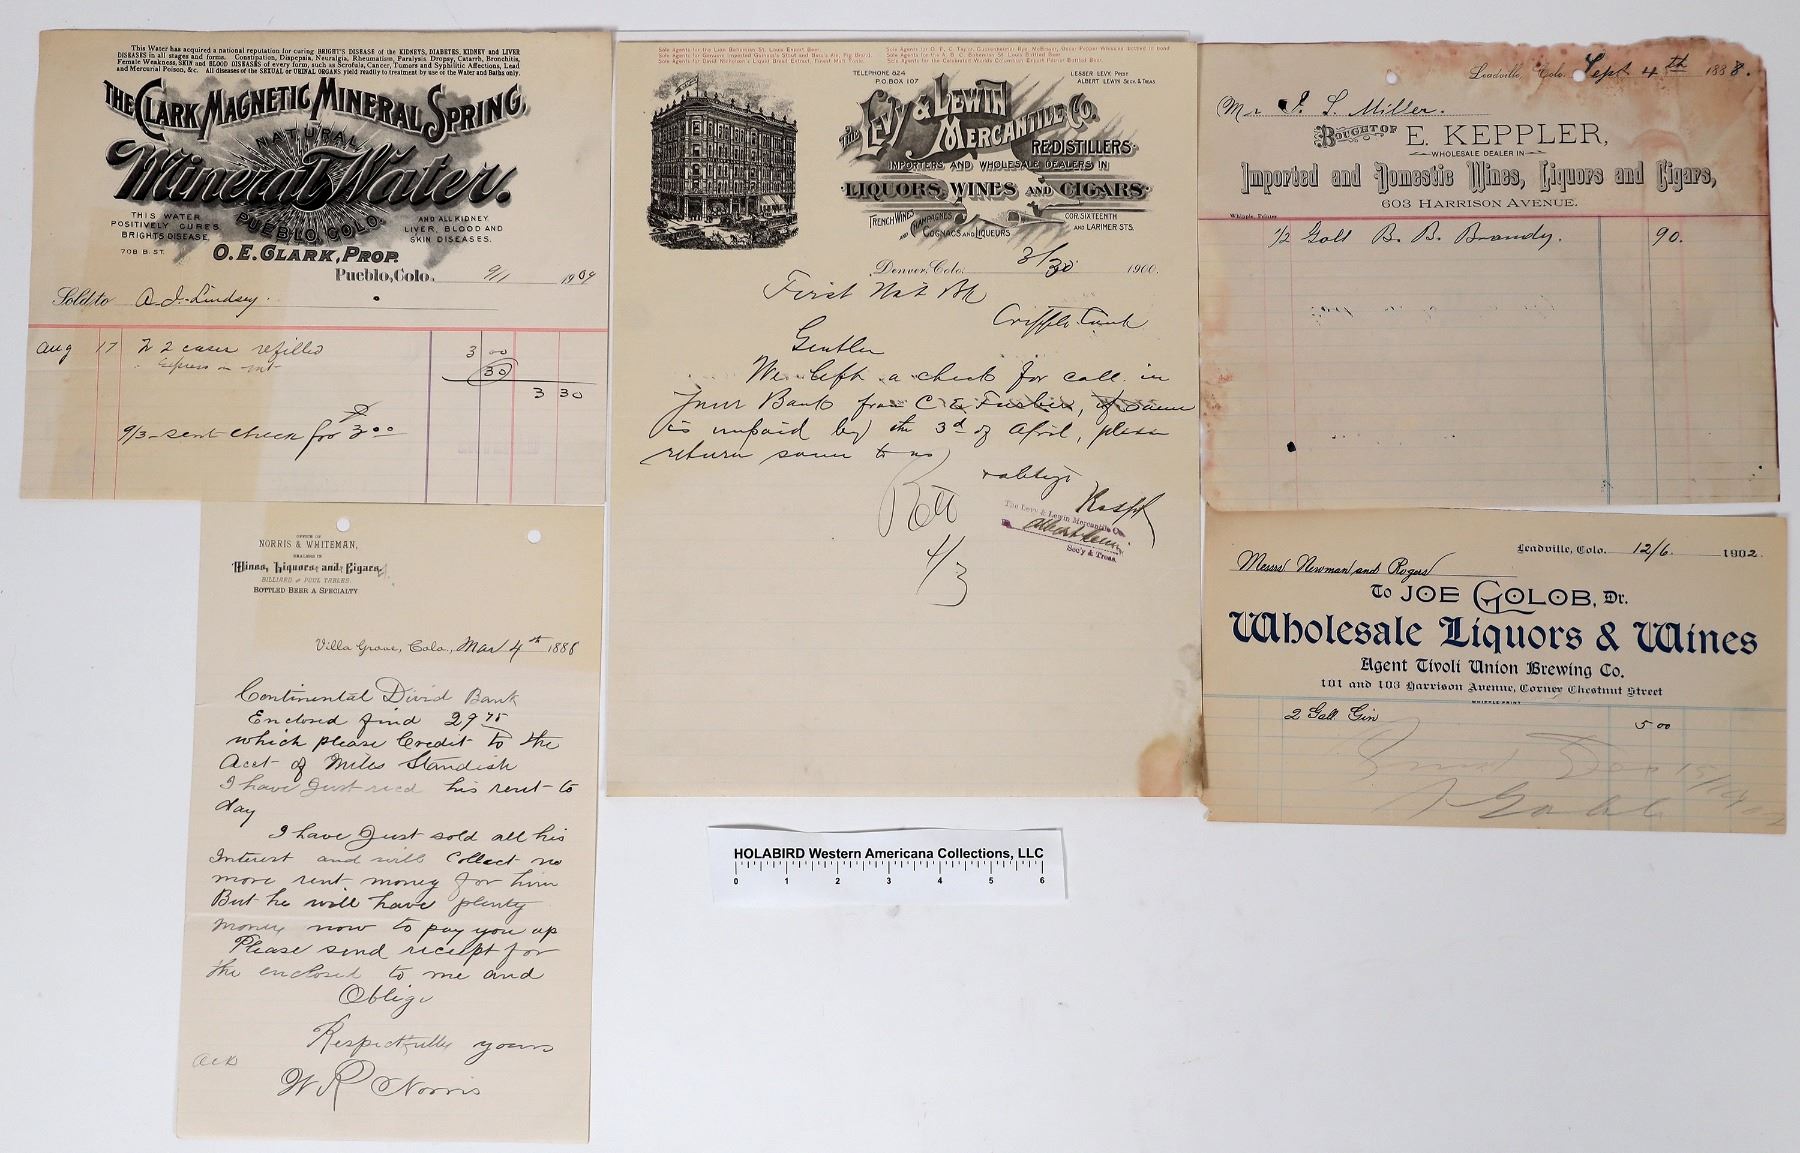 This Water has acquired a national reputation for curing BRIGHT'S DISEASE of the KIDNEYS, DIABETES, KIDNEY and LIVER
DISEASES in all stages and forms. Constipation, Dispepsia, Neuralgia, Rheumatism, Paralysis Dropsy, Catarrh, Bronchitis,
Female Weakness, SKIN and BLOOD DISEASES of every form, such as Scrofula, Cancer, Tumors and Syphilitic Affections, Lead
and Mercurial Poison, &c. All diseases of the SEXUAL or URINAL ORGANS yield readily to treatment by use of the Water and Baths only.
THE CLARK MAGNETIC MINERAL SPRING,
NATURAL
Mineral Water.
PUEBLO, COLO.
THIS WATER
POSITIVELY CURES
BRIGHTS DISEASE,
AND ALL KIDNEY
LIVER, BLOOD AND
SKIN DISEASES.
708 B. ST.
O. E. CLARK, PROP.
Pueblo, Colo. 9/1 1909
Sold to A. J. Lindsey.
Aug 17 2 cases refilled 3 00
Express on 30
3 30
9/3 - sent check for 3 00
OFFICE OF
NORRIS & WHITEMAN,
DEALERS IN
Wines, Liquors and Cigars.
BILLIARD and POOL TABLES.
BOTTLED BEER A SPECIALTY
Villa Grove, Colo., Mar 4th 1886
Continental Divid Bank
Enclosed find 29 75
which please Credit to the
Acct of Miles Standish
I have Just recd his rent to
day
I have Just sold all his
Interest and will Collect no
more rent money for him
But he will have plenty
money now to pay you up
Please send receipt for
the enclosed to me and
Oblige
Respectfully yours
W R Norris
Ack
Sole Agents for the Lion Bohemian St. Louis Export Beer.
Sole Agents for David Nicholson's Liquid Bread Extract, Finest Malt Tonic.
TELEPHONE 824
P.O. BOX 107
LESSER LEVY, PREST
ALBERT LEWIN SECY. & TREAS
THE LEVY & LEWIN
MERCANTILE CO.
RE-DISTILLERS
IMPORTERS AND WHOLESALE DEALERS IN
LIQUORS, WINES AND CIGARS
FRENCH WINES
AND CHAMPAGNES
COGNACS AND LIQUEURS
COR. SIXTEENTH
AND LARIMER STS.
Denver, Colo. 3/30 1900.
First Nat Bk
Cripple Creek
Gentlen
We left a check for call in
your Bank from C E Fisher, if same
is unpaid by the 3d of April, please
return same to us
Ret
4/3
The Levy & Lewin Mercantile Co.
Albert Lewin
Sec'y & Treas.
HOLABIRD Western Americana Collections, LLC
0 1 2 3 4 5 6
Leadville, Colo. Sept 4th 1888.
Mr J. L. Miller.
BOUGHT OF E. KEPPLER,
WHOLESALE DEALER IN
Imported and Domestic Wines, Liquors and Cigars,
603 HARRISON AVENUE.
Whipple, Printer
1/2 Gall B. B. Brandy. 90.
Leadville, Colo. 12/6 1902
Messrs Newman and Rogers
To JOE GOLOB, Dr.
Wholesale Liquors & Wines
Agent Tivoli Union Brewing Co.
101 and 103 Harrison Avenue, Corner Chestnut Street
WHIPPLE PRINT
2 Gall Gin 5 00